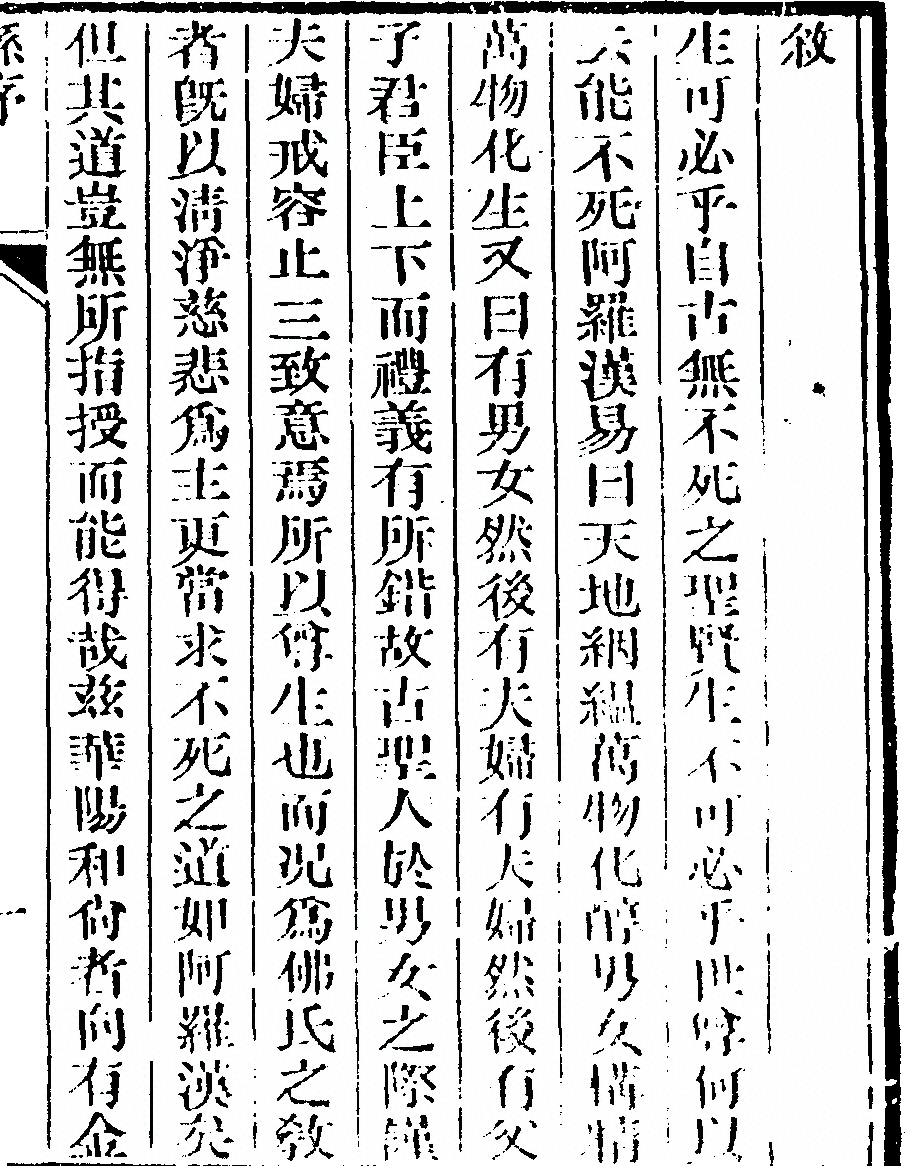 敘
生可必乎自古無不死之聖賢生不可必乎世尊何以
云能不死阿羅漢易曰天地絪縕萬物化醇男女構精
萬物化生又曰有男女然後有夫婦有夫婦然後有父
子君臣上下而禮義有所錯故古聖人於男女之際謹
夫婦戒容止三致意焉所以尊生也而况爲佛氏之敎
者旣以清淨慈悲爲主更當求不死之道如阿羅漢矣
但其道豈無所指授而能得哉兹華陽和尙者向有金